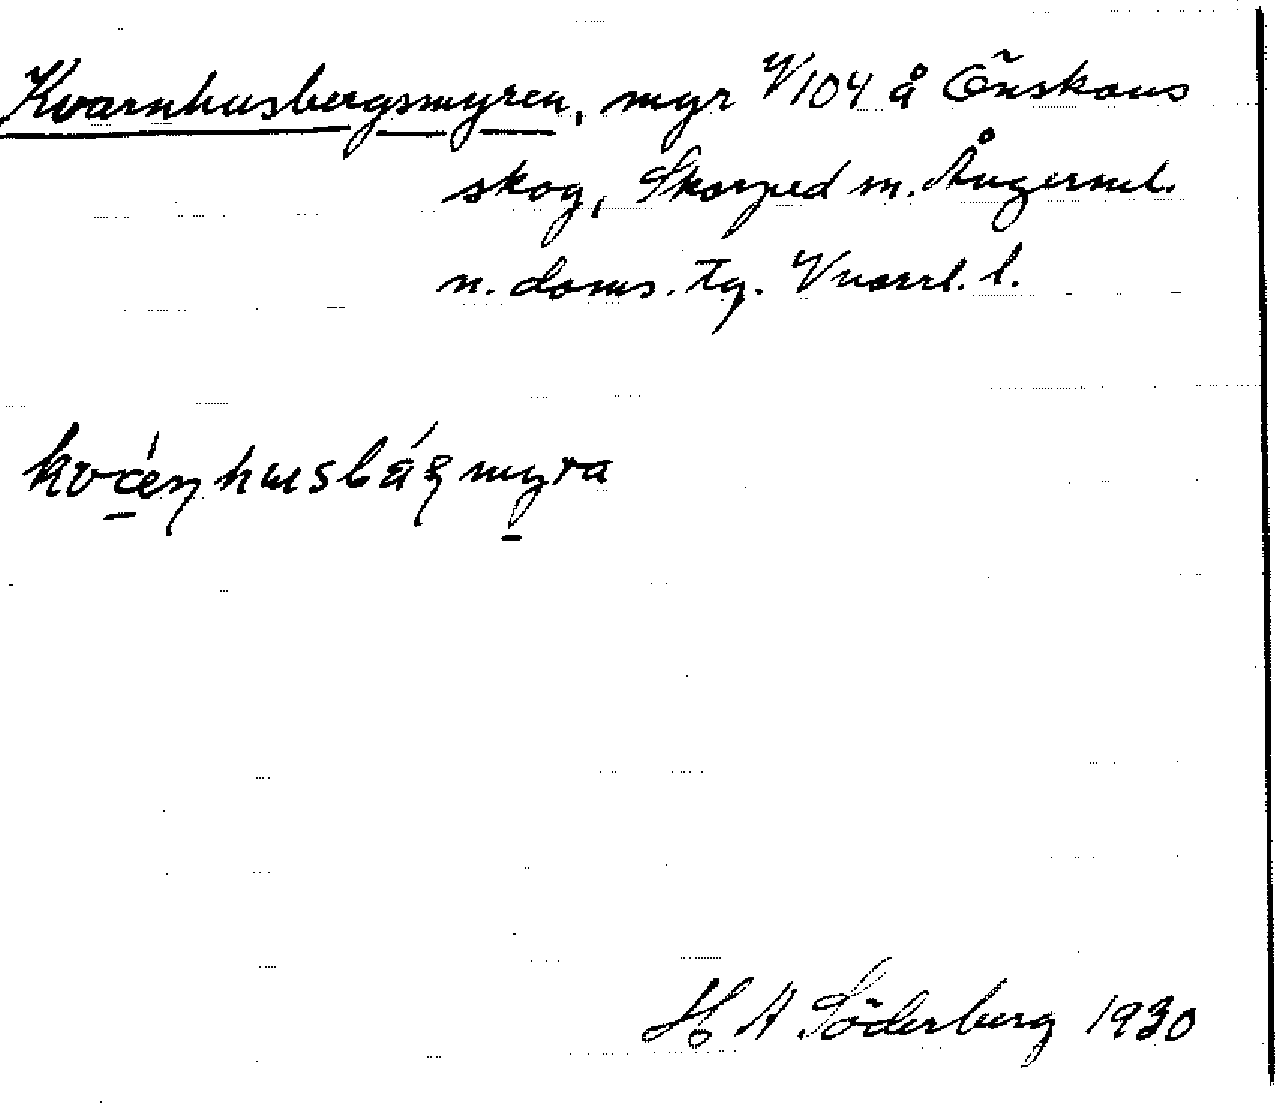 Kvarnhusbergsmyren, myr V104 å Önskans
skog, Skorped sn. Ångerml.
n. doms. tg. Vnorrl. l.
kvæ̀ɳhusbármyra
H A Söderberg 1930